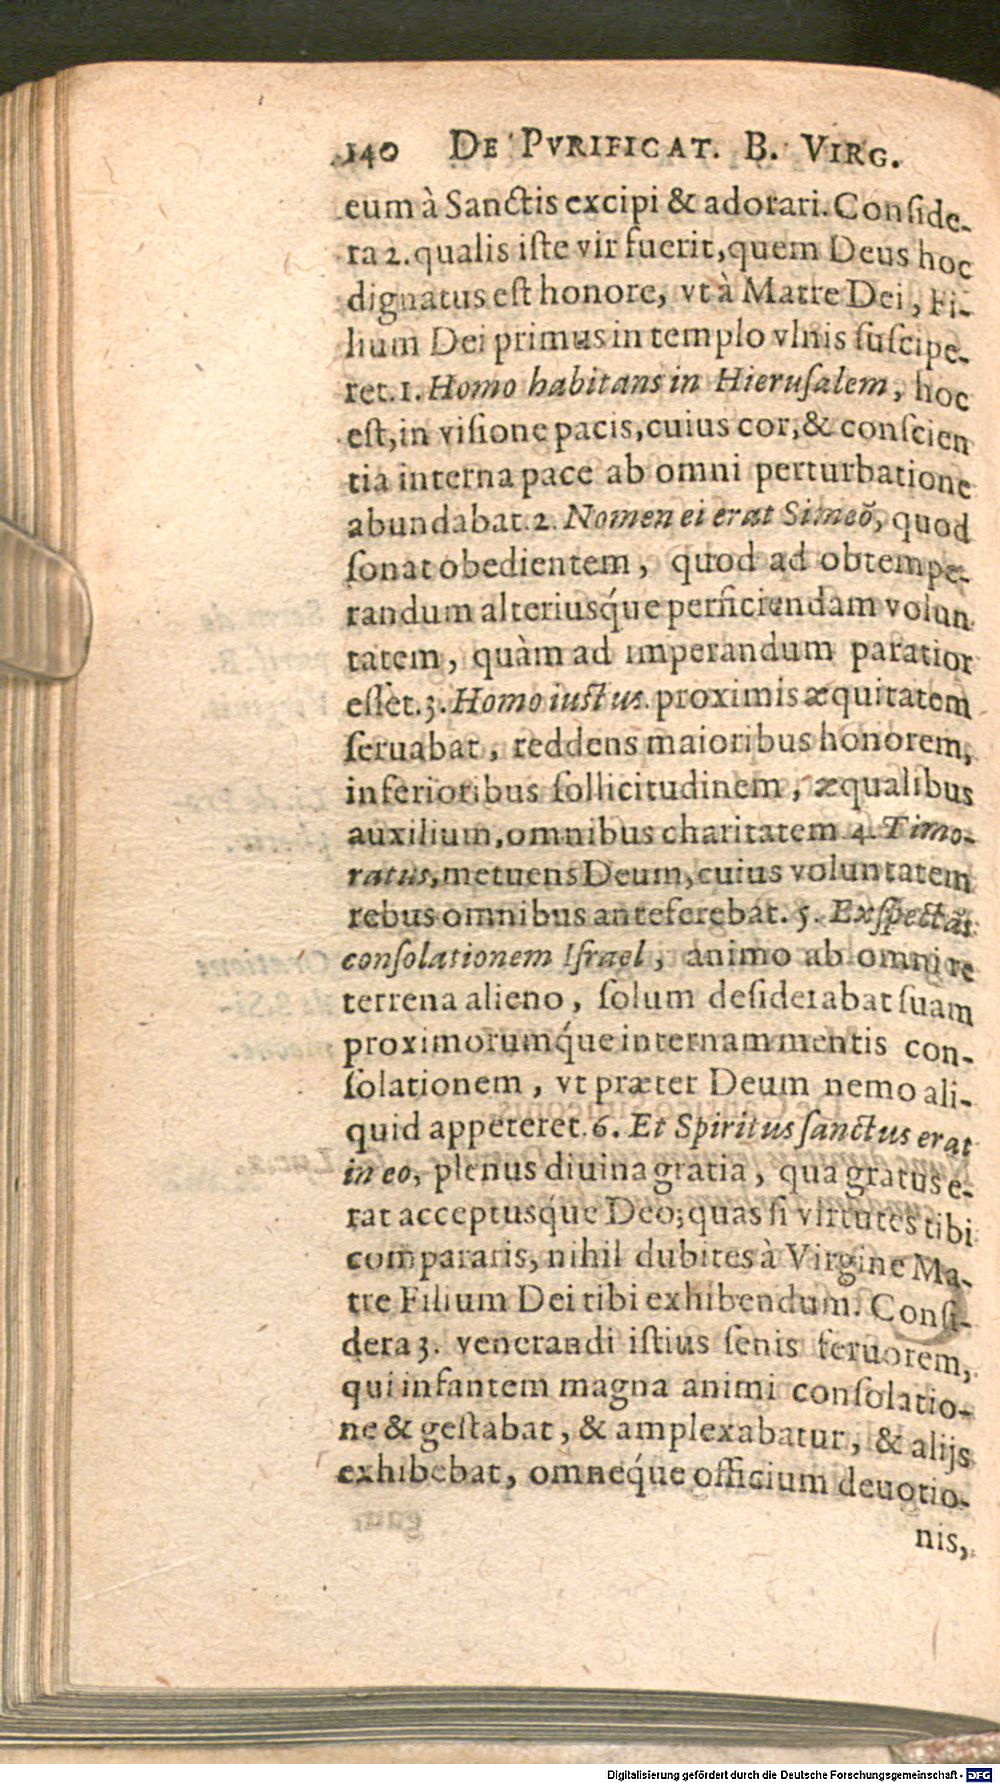 140 DE PVRIFICAT. B. VIRG.
eum à Sanctis excipi & adorari. Conſide-
ra 2. qualis iſte vir fuerit, quem Deus hoc
dignatus eſt honore, vt à Matre Dei, Fi-
lium Dei primus in templo vlnis ſuſcipe-
ret. 1. Homo habitans in Hieruſalem, hoc
eſt, in viſione pacis, cuius cor, & conſcien
tia interna pace ab omni perturbatione
abundabat. 2. Nomen ei erat Simeõ, quod
ſonat obedientem, quod ad obtempe-
randum alteriusq́ue perficiendam volun
tatem, quàm ad imperandum paratior
eſſet. 3. Homo iustus proximis æquitatem
ſeruabat, reddens maioribus honorem,
inferioribus ſollicitudinem, æqualibus
auxilium, omnibus charitatem 4. Timo-
ratus, metuens Deum, cuius voluntatem
rebus omnibus anteferebat. 5. Exſpectãs
conſolationem Iſrael, animo ab omni re
terrena alieno, ſolum deſiderabat ſuam
proximorumq́ue internam mentis con-
ſolationem, vt præter Deum nemo ali-
quid appeteret. 6. Et Spiritus ſanctus erat
in eo, plenus diuina gratia, qua gratus e-
rat acceptusq́ue Deo; quas ſi virtutes tibi
compararis, nihil dubites à Virgine Ma-
tre Filium Dei tibi exhibendum. Conſi-
dera 3. venerandi iſtius ſenis feruorem,
qui infantem magna animi conſolatio-
ne & geſtabat, & amplexabatur, & alijs
exhibebat, omneq́ue officium deuotio-
nis,
Digitalisierung gefördert durch die Deutsche Forschungsgemeinschaft - DFG